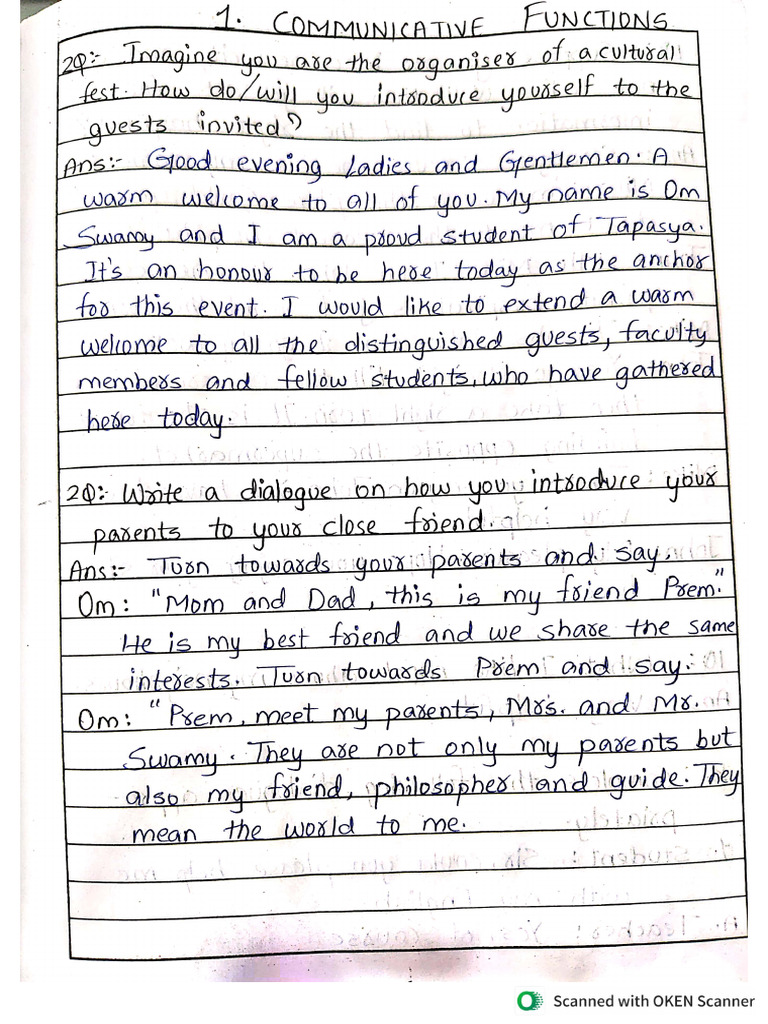 1. COMMUNICATIVE FUNCTIONS
2Q:- Imagine you are the organiser of a cultural
fest. How do/will you introduce yourself to the
guests invited?
Ans:- Good evening Ladies and Gentlemen. A
warm welcome to all of you. My name is Om
Swamy and I am a proud student of Tapasya.
It's an honour to be here today as the anchor
for this event. I would like to extend a warm
welcome to all the distinguished guests, faculty
members and fellow students, who have gathered
here today.
2Q:- Write a dialogue on how you introduce your
parents to your close friend.
Ans:- Turn towards your parents and say,
Om: "Mom and Dad, this is my friend Prem."
He is my best friend and we share the same
interests. Turn towards Prem and say:
Om: "Prem, meet my parents, Mrs. and Mr.
Swamy. They are not only my parents but
also my friend, philosopher and guide. They
mean the world to me.
Scanned with OKEN Scanner